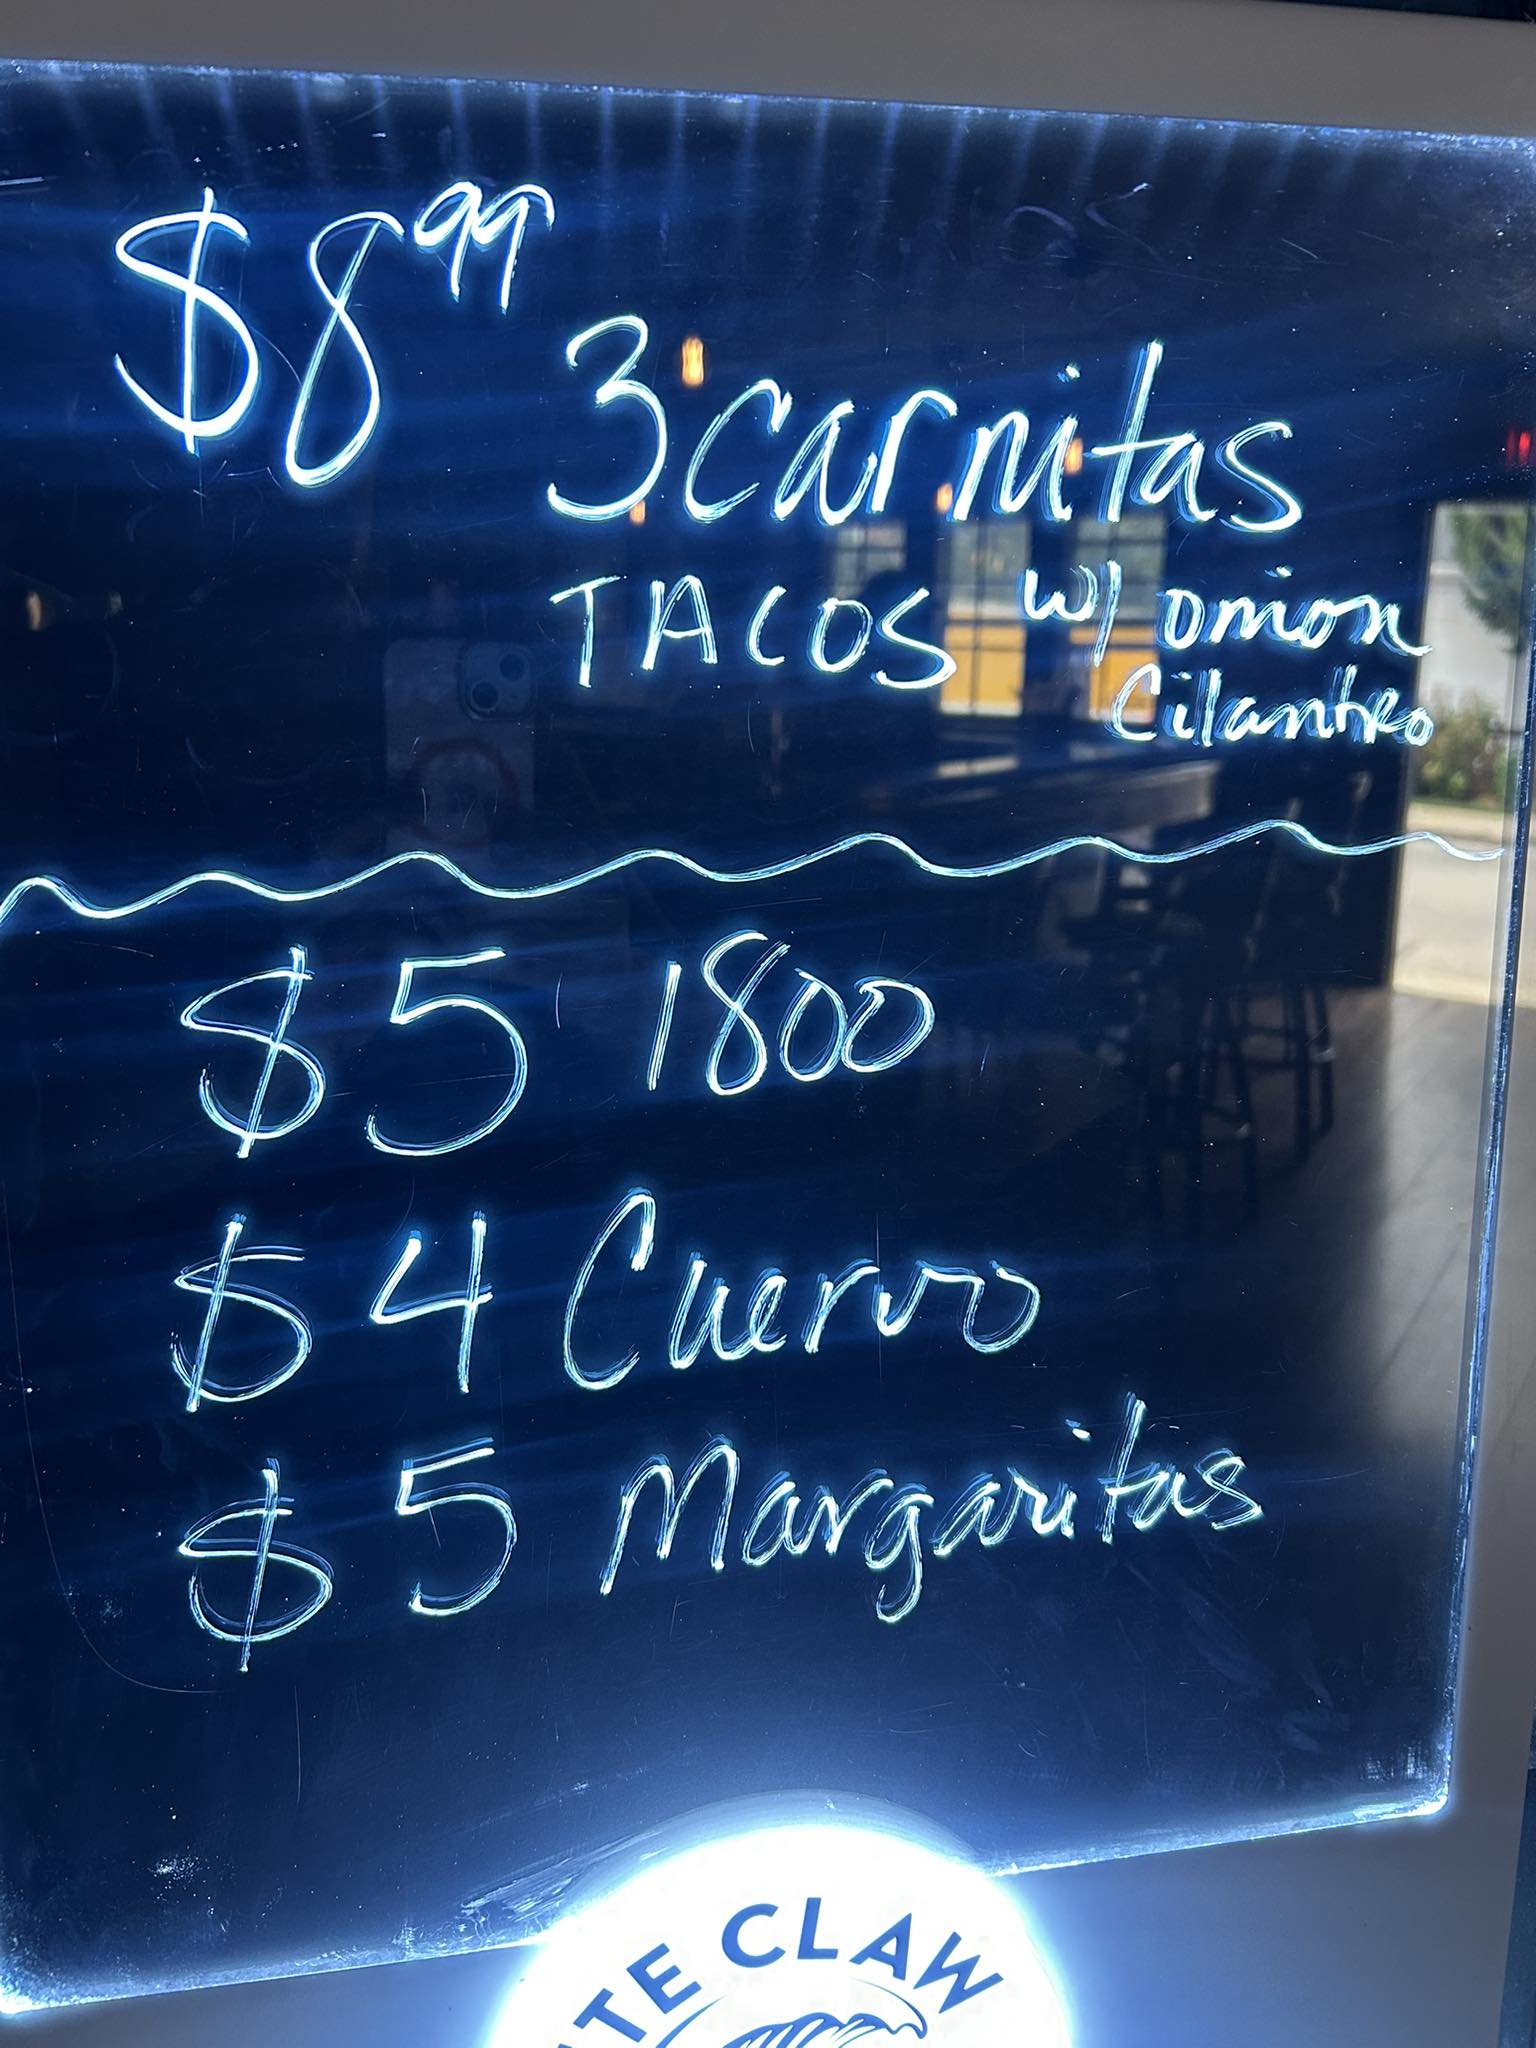 $8.99
3 carnitas
TACOS w/ onion
Cilantro
$5 1800
$4 Cuervo
$5 Margaritas
CLAW